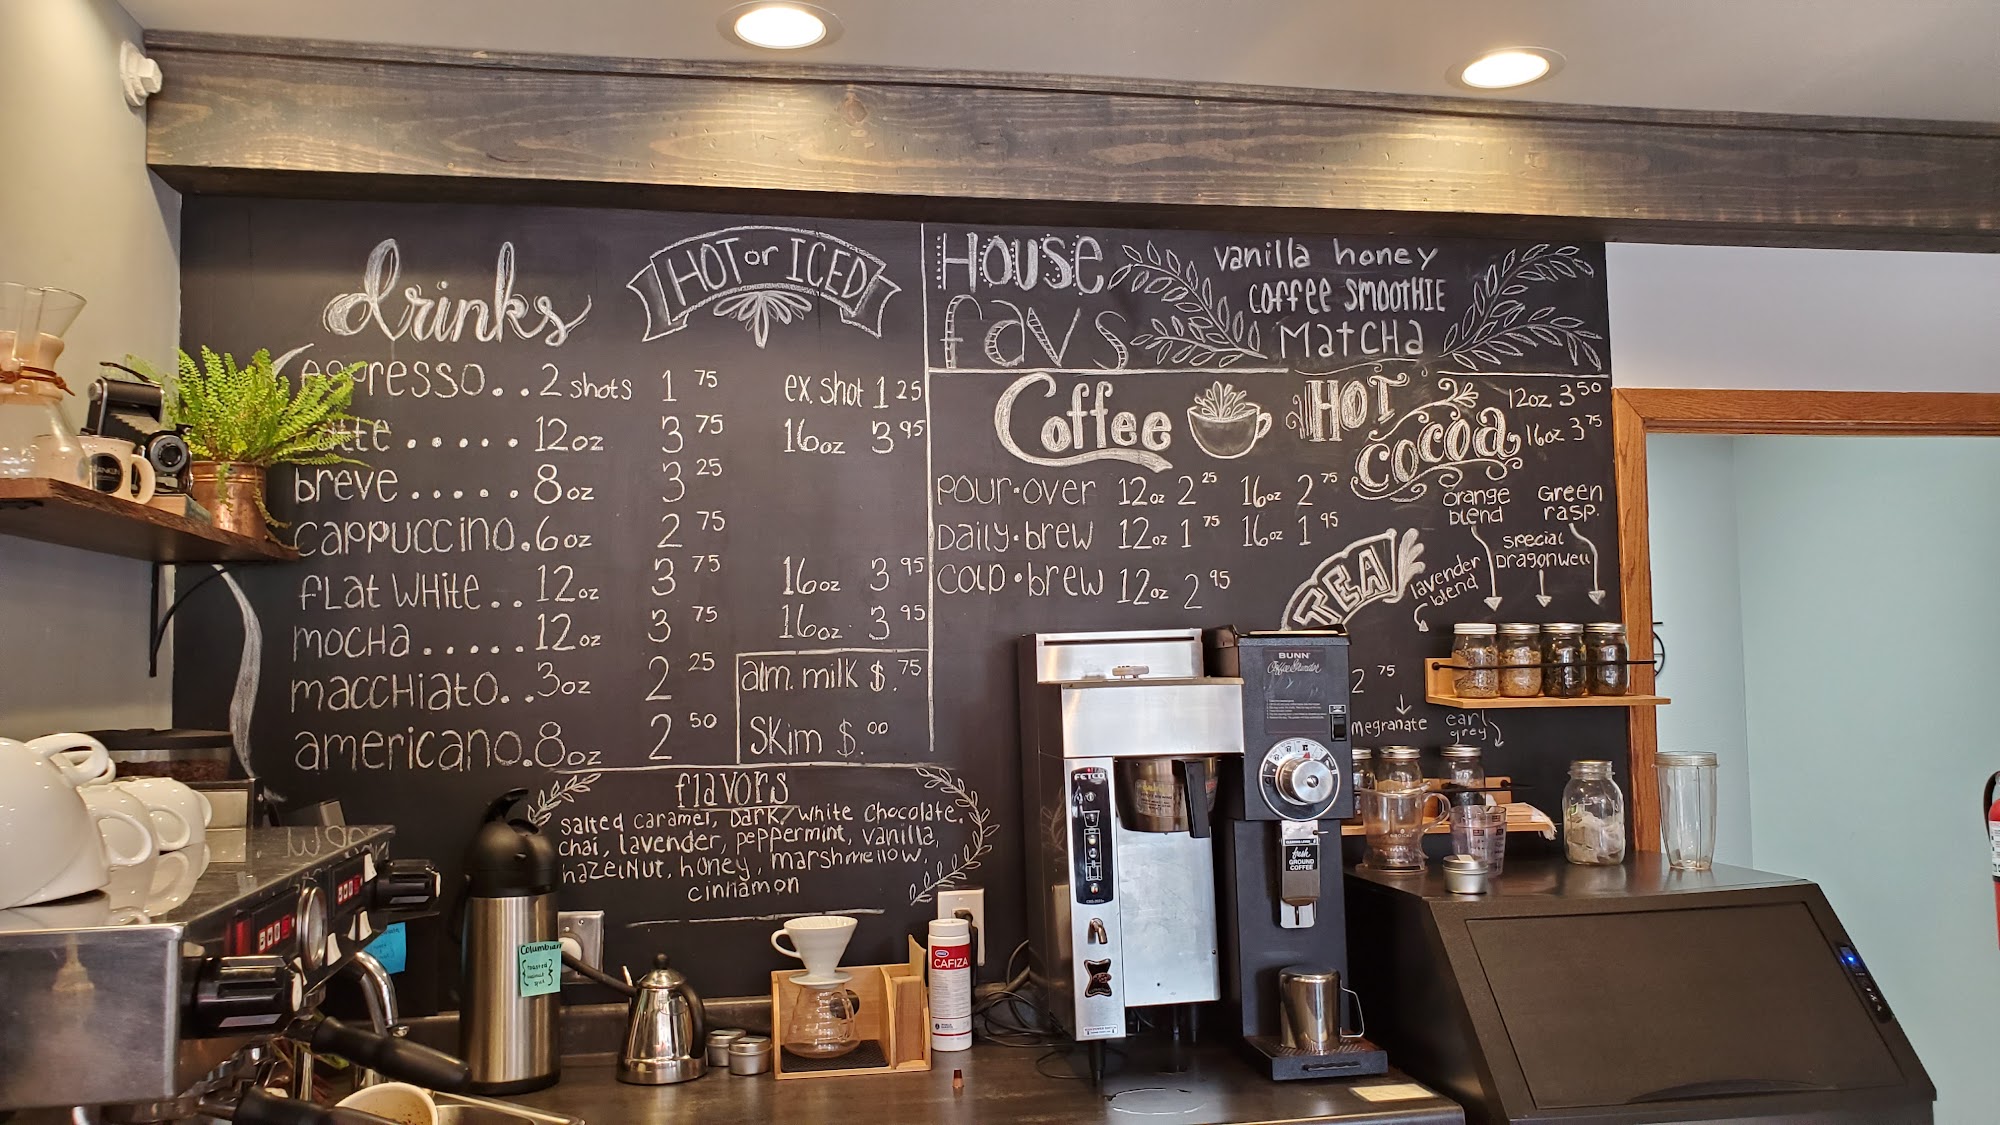 drinks
HOT or ICED
espresso.. 2 shots 1 75 ex shot 1 25
latte ..... 12oz 3 75 16oz 3 95
breve ..... 8oz 3 25
cappuccino. 6oz 2 75
flat white.. 12oz 3 75 16oz 3 95
mocha ..... 12oz 3 75 16oz 3 95
macchiato.. 3oz 2 25
americano. 8oz 2 50
alm. milk $.75
Skim $.00
flavors
salted caramel, dark/white chocolate,
chai, lavender, peppermint, vanilla,
hazelnut, honey, marshmellow,
cinnamon
HOUSE favs
vanilla honey
coffee smoothie
Matcha
Coffee
pour·over 12oz 2 25 16oz 2 75
Daily·brew 12oz 1 75 16oz 1 95
cold·brew 12oz 2 95
HOT cocoa
12oz 3 50
16oz 3 75
TEA
lavender blend
orange blend
special Dragonwell
Green rasp.
2 75
megranate
earl grey
BUNN
Coffee Grinder
FETCO
fresh
GROUND
COFFEE
CAFIZA
Columbian